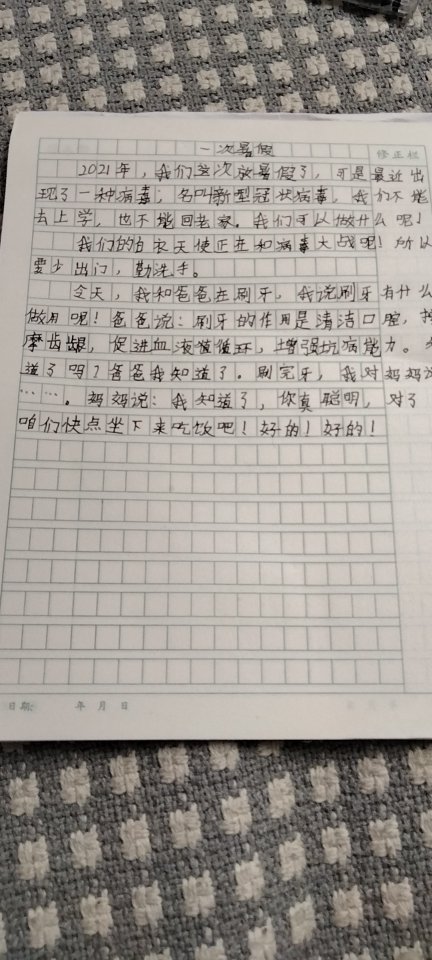 一次暑假
修正栏
2021年，我们这次放暑假了，可是最近出
现了一种病毒；名叫新型冠状病毒，我们不能
去上学，也不能回老家。我们可以做什么呢！
我们的白衣天使正在和病毒大战呢！所以
要少出门，勤洗手。
今天，我和爸爸在刷牙，我说刷牙有什么
做用呢！爸爸说：刷牙的作用是清洁口腔，按
摩齿龈，促进血液循环，增强抗病能力。
道了吗？爸爸我知道了。刷完牙，我对妈妈说
……。妈妈说：我知道了，你真聪明，对了
咱们快点坐下来吃饭吧！好的！好的！
日期： 年 月 日